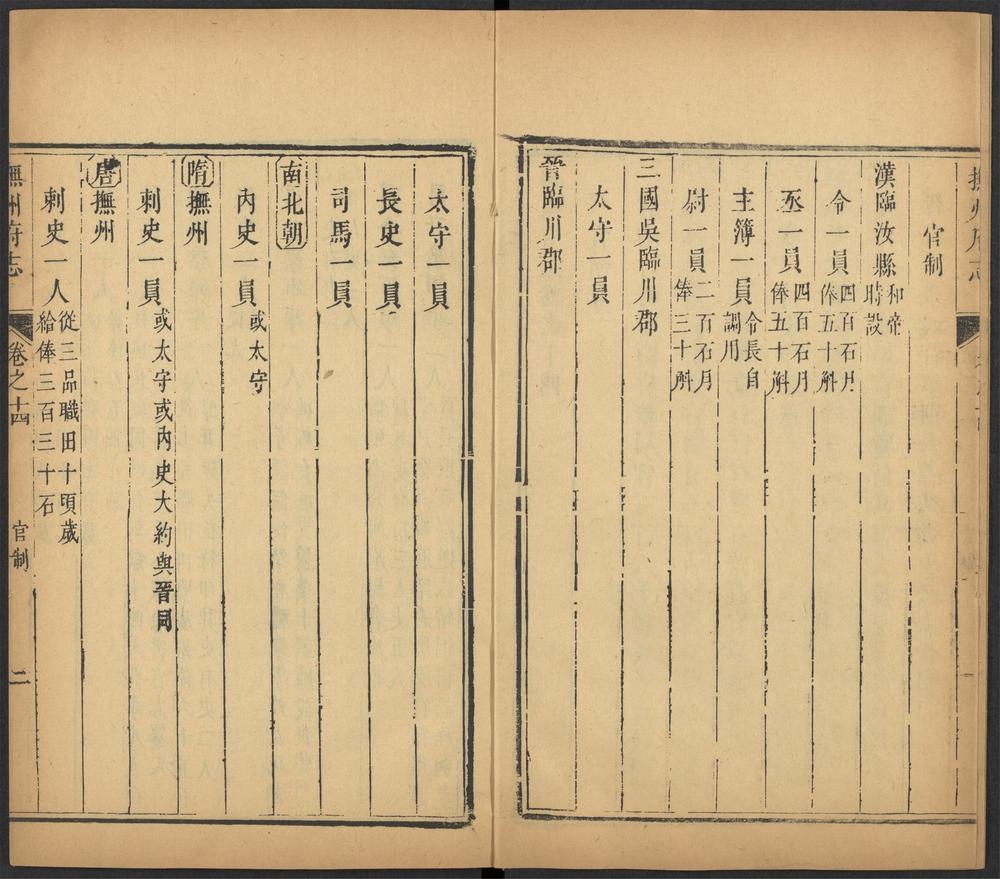 撫州府志
官制
漢臨汝縣和帝
時設
令一員四百石月
俸五十斛
丞一員四百石月
俸五十斛
主簿一員令長自
調用
尉一員二百石月
俸三十斛
三國吳臨川郡
太守一員
晉臨川郡
太守一員
長史一員
司馬一員
南北朝
內史一員或太守
隋撫州
刺史一員或太守或內史大約與晉同
唐撫州
刺史一人從三品職田十頃歲
給俸三百三十石
撫州府志 卷之十四 官制 二